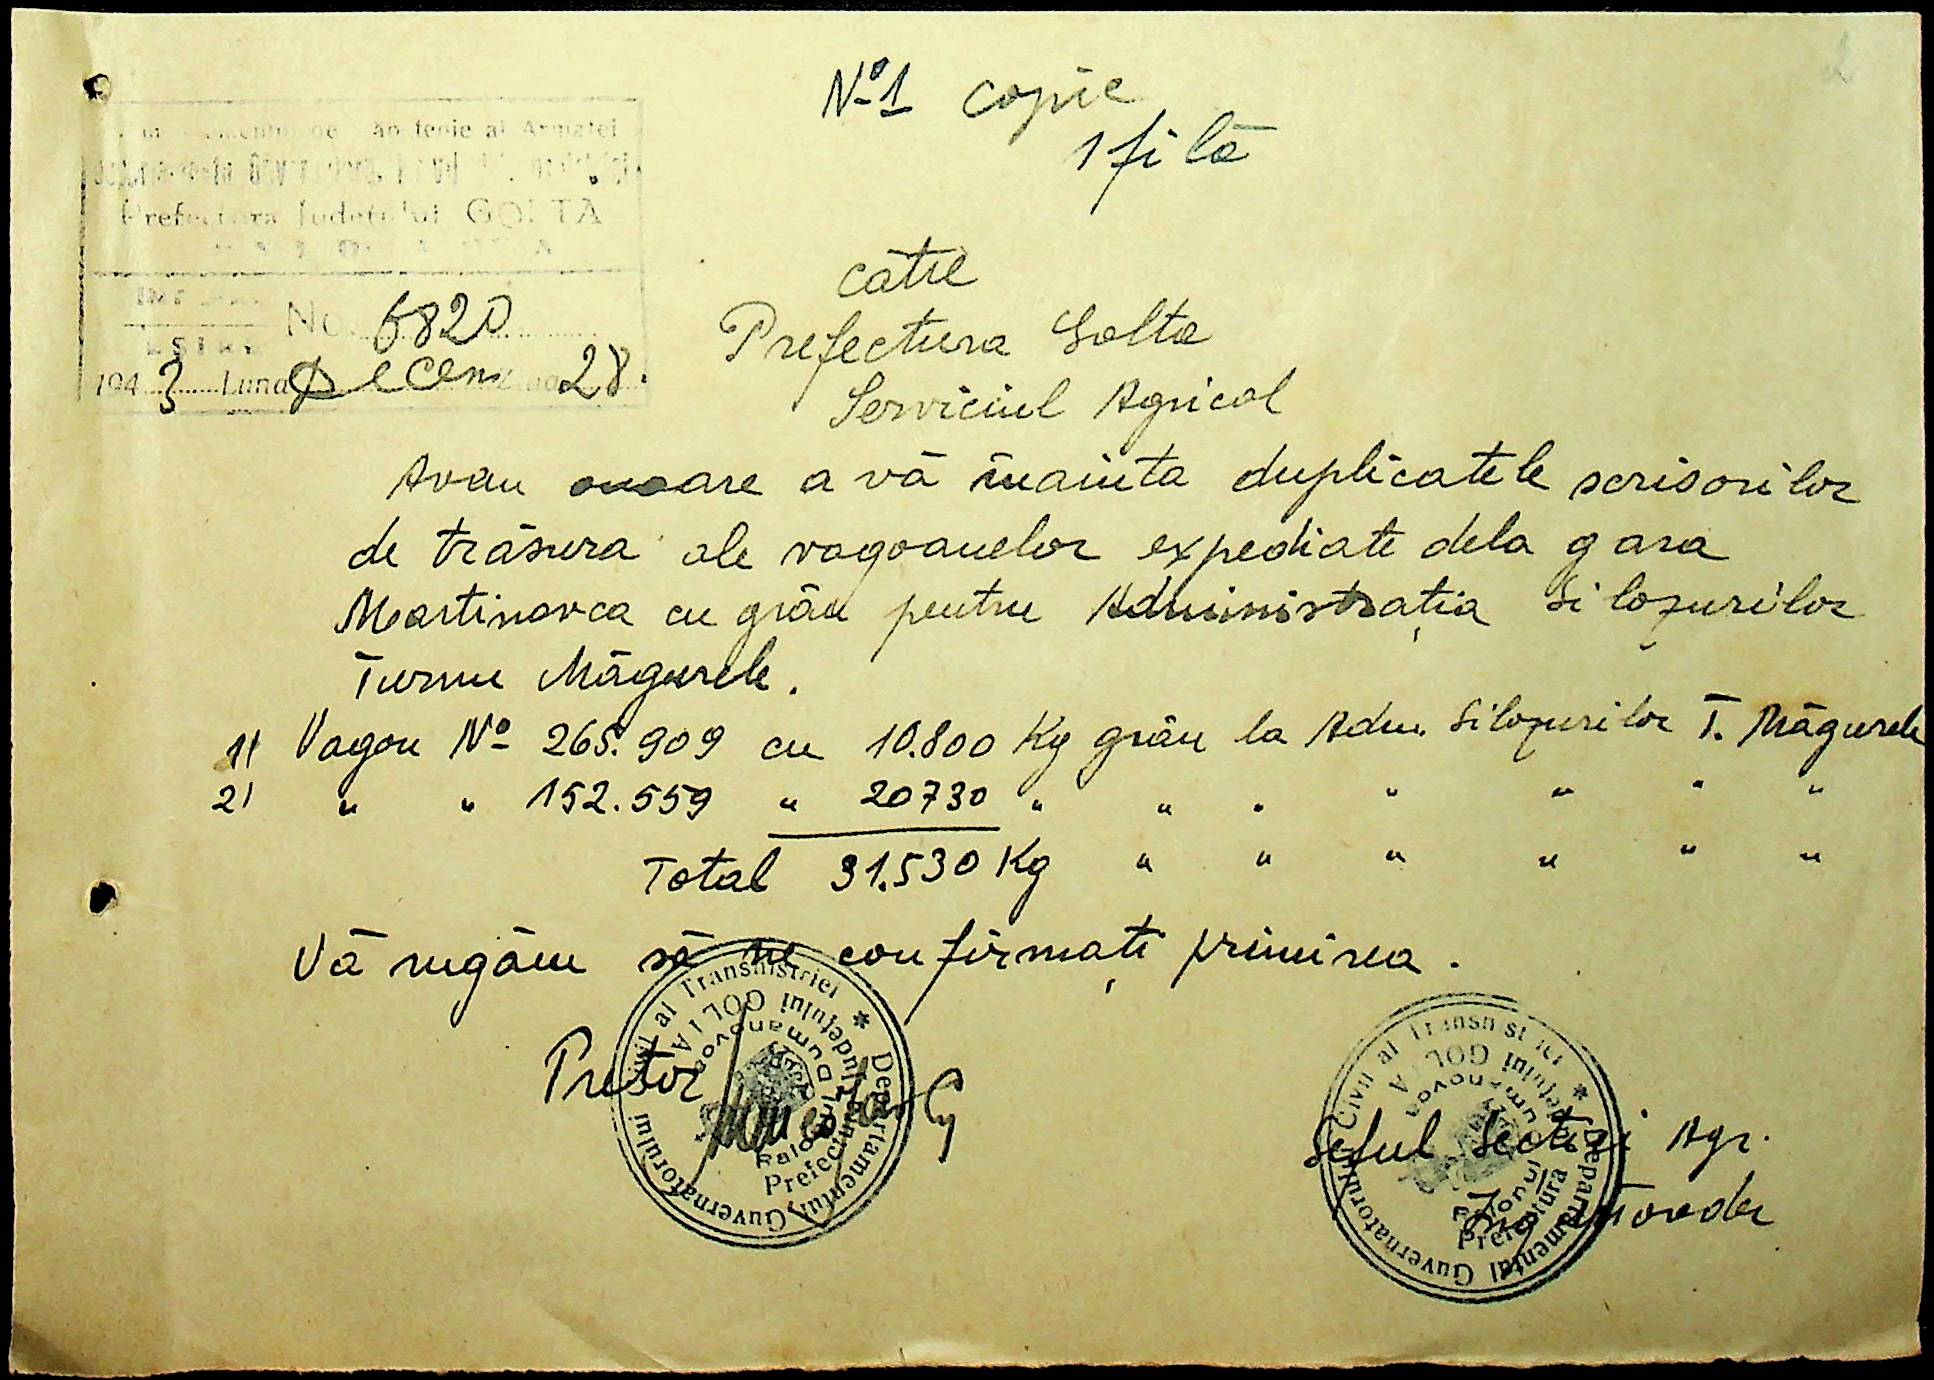 Nº 1 copie
1 filă
al Armatei
Prefectura Județului GOLTA
No. 6820
1943 Luna Decem 28.
către
Prefectura Golta
Serviciul Agricol
Avem onoare a vă înainta duplicatele scrisorilor
de trăsura ale vagoanelor expediate dela gara
Martinovca cu grâu pentru Administrația Silozurilor
Turnu Măgurele.
1) Vagon Nº 265.909 cu 10.800 Kg grâu la Adm. Silozurilor T. Măgurele
2) " " 152.559 " 20730 " " " " " " "
Total 31.530 Kg " " " " " "
Vă rugăm să ne confirmați primirea.
Pretor
Departamentul Guvernatorului Civil al Transnistriei
Prefectura Județului GOLTA
Raionul Dumanovca
Seful Secției Agr.
Ing.
Departamentul Guvernatorului Civil al Transnistriei
Prefectura Județului GOLTA
Raionul Dumanovca